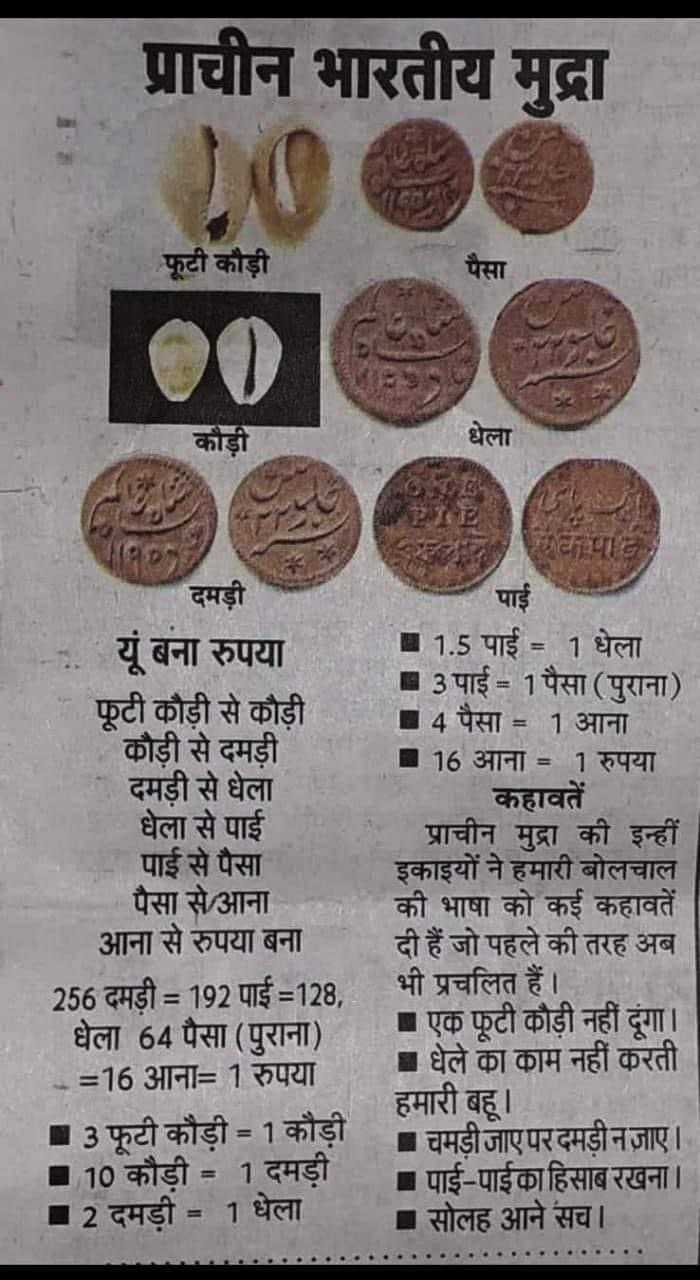 प्राचीन भारतीय मुद्रा
फूटी कौड़ी
पैसा
कौड़ी
धेला
दमड़ी
ONE
PIE
पाई
यूं बना रुपया
फूटी कौड़ी से कौड़ी
कौड़ी से दमड़ी
दमड़ी से धेला
धेला से पाई
पाई से पैसा
पैसा से आना
आना से रुपया बना
256 दमड़ी = 192 पाई =128,
धेला 64 पैसा (पुराना)
=16 आना= 1 रुपया
■ 3 फूटी कौड़ी = 1 कौड़ी
■ 10 कौड़ी = 1 दमड़ी
■ 2 दमड़ी = 1 धेला
■ 1.5 पाई = 1 धेला
■ 3 पाई = 1 पैसा (पुराना)
■ 4 पैसा = 1 आना
■ 16 आना = 1 रुपया
कहावतें
प्राचीन मुद्रा की इन्हीं
इकाइयों ने हमारी बोलचाल
की भाषा को कई कहावतें
दी हैं जो पहले की तरह अब
भी प्रचलित हैं।
■ एक फूटी कौड़ी नहीं दूंगा।
■ धेले का काम नहीं करती
हमारी बहू।
■ चमड़ी जाए पर दमड़ी न जाए।
■ पाई-पाई का हिसाब रखना।
■ सोलह आने सच।